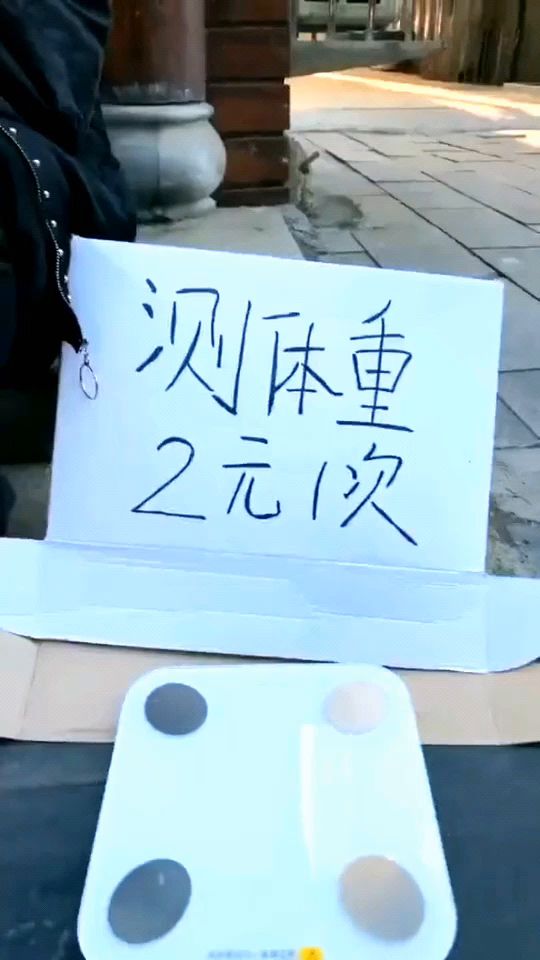 测体重
2元1次